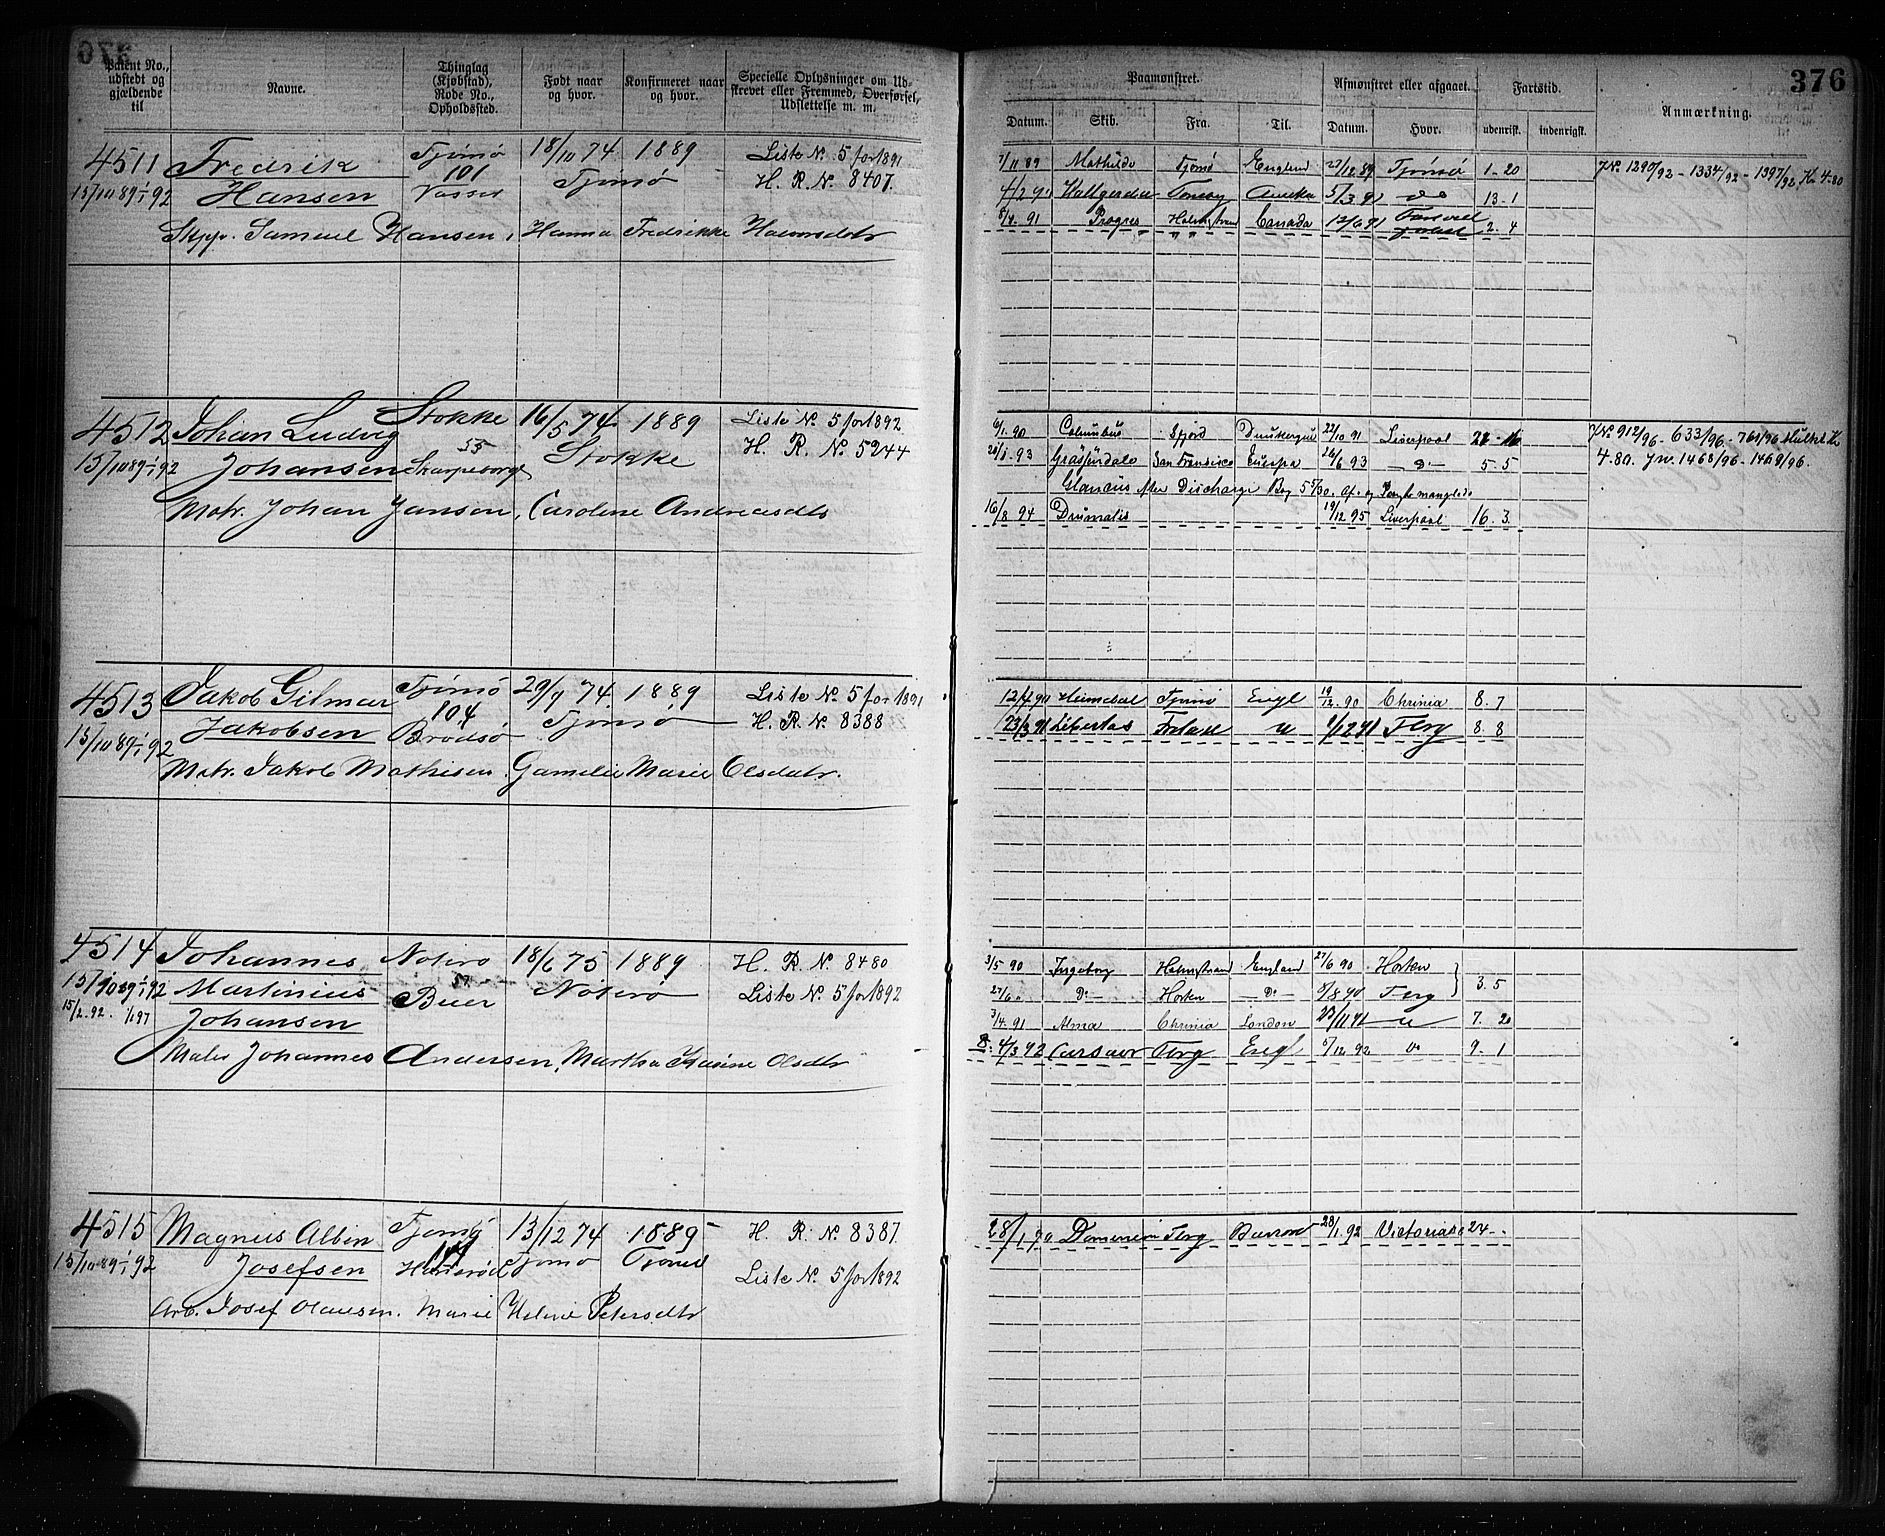 376
Patent No., udstedt og gjældende til
Navne.
Thinglag (Kjøbstad), Rode No., Opholdssted.
Født naar og hvor.
Konfirmeret naar og hvor.
Specielle Oplysninger om Udskrevet eller Fremmed, Overførsel, Udslettelse m. m.
Paamønstret.
Afmønstret eller afgaaet.
Fartstid.
Anmærkning.
376
Datum.
Skib.
Fra.
Til.
Datum.
Hvor.
udenriks.
indenrigsk.
4511 Fredrik Tjømø 18/10 74 1889 Liste No. 5 for 1891
15/10 89 1/1 92 Hansen 101 Vasser Tjømø H. R. No. 8407.
Skpp. Samuel Hansen, Hanna Fredrikke Halvorsdtr
7/11 89 Mathilde Tjømø England 27/12 89 Tjømø 1-20
4/2 90 Hallgerda Tønsbg Amrka 13-1
8/4. 91 Progres Holmstrand Canada 12/6 91 2. 4
JNo. 1290/92 - 1334/92 - 1397/92 K 4-80
4512 Johan Ludvig Stokke 16/5 74 1889 Liste No. 5 for 1892
15/10 89 1/1 92 Johansen 55 Skarpeborg Stokke H. R. No. 5244
Matr. Johan Jansen, Caroline Andreasdtr
6/1. 90 Columbus 22/10 91 Liverpool
20/1. 93 San Fransisco Europa 26/6 93 -D- 5.5
Glancus efter Discharge Bog
16/8 94 Drumalis 19/12 95 Liverpool 16. 3.
JNo 912/96 - 633/96 - 761/96 Mulkt K
4.80. Jn. 1468/96 - 1469/96.
4513 Jakob Gilmar Tjømø 29/9 74 1889 Liste No. 5 for 1891
15/10 89 1/1 92 Jakobsen 104 Brødsø Tjømø H. R. No. 8388
Matr. Jakob Mathisen, Gamelie Marie Olsdatr.
12/4 90 Heimdal Tjømø Engl 19/12. 90 Chrinia 8. 7
23/3 91 Libertas 9/12 91 Tbrg 8. 8
4514 Johannes Noterø 18/6 75 1889 H. R. No. 8480
15/10 89 1/1 92 Martinius Buer Noterø Liste No. 5 for 1892
15/2. 92. 1/1 97 Johansen
Males Johannes Andersen, Martha Karine Olsdtr
3/5 90 Ingeborg Holmstrand England 27/6 90 Horten
27/6 " Do - Horten - Do - 8/8 90 Tbrg 3. 5
3/4. 91 Alma Chrinia London 23/11 91 7. 20
4/3 92 Tbrg Engl 5/12 92 9. 1
4515 Magnus Albin Tjømø 13/12 74 1889 H. R. No. 8387.
15/10 89 1/1 92 Josefsen Tjømø Tjømø Liste No. 5 for 1892
Arb. Josef Olausen. Marie Helene Petersdtr
28/1 90 Tbrg Barrow 28/1. 92 24 -